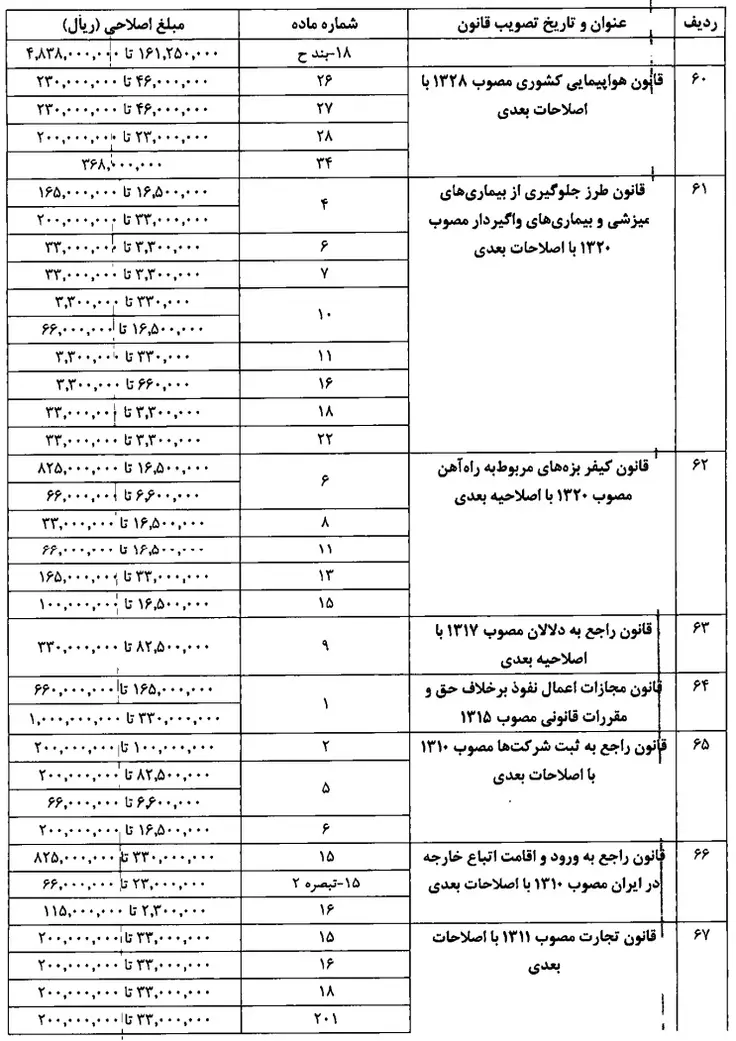 ردیف عنوان و تاریخ تصویب قانون شماره ماده مبلغ اصلاحی (ریال)
۱۸-بند ح ۱۶۱,۲۵۰,۰۰۰ تا ۴,۸۳۸,۰۰۰,۰۰۰
۶۰ قانون هواپیمایی کشوری مصوب ۱۳۲۸ با ۲۶ ۴۶,۰۰۰,۰۰۰ تا ۲۳۰,۰۰۰,۰۰۰
اصلاحات بعدی ۲۷ ۴۶,۰۰۰,۰۰۰ تا ۲۳۰,۰۰۰,۰۰۰
۲۸ ۲۳,۰۰۰,۰۰۰ تا ۲۰۰,۰۰۰,۰۰۰
۳۴ ۳۶۸,۰۰۰,۰۰۰
۶۱ قانون طرز جلوگیری از بیماری‌های ۴ ۱۶,۵۰۰,۰۰۰ تا ۱۶۵,۰۰۰,۰۰۰
میزشی و بیماری‌های واگیردار مصوب ۳۳,۰۰۰,۰۰۰ تا ۲۰۰,۰۰۰,۰۰۰
۱۳۲۰ با اصلاحات بعدی ۶ ۳,۳۰۰,۰۰۰ تا ۳۳,۰۰۰,۰۰۰
۷ ۳,۳۰۰,۰۰۰ تا ۳۳,۰۰۰,۰۰۰
۱۰ ۳۳۰,۰۰۰ تا ۳,۳۰۰,۰۰۰
۱۶,۵۰۰,۰۰۰ تا ۶۶,۰۰۰,۰۰۰
۱۱ ۳۳۰,۰۰۰ تا ۳,۳۰۰,۰۰۰
۱۶ ۶۶۰,۰۰۰ تا ۳,۳۰۰,۰۰۰
۱۸ ۳,۳۰۰,۰۰۰ تا ۳۳,۰۰۰,۰۰۰
۲۲ ۳,۳۰۰,۰۰۰ تا ۳۳,۰۰۰,۰۰۰
۶۲ قانون کیفر بزه‌های مربوط‌به راه‌آهن ۶ ۱۶,۵۰۰,۰۰۰ تا ۸۲۵,۰۰۰,۰۰۰
مصوب ۱۳۲۰ با اصلاحیه بعدی ۶,۶۰۰,۰۰۰ تا ۶۶,۰۰۰,۰۰۰
۸ ۱۶,۵۰۰,۰۰۰ تا ۳۳,۰۰۰,۰۰۰
۱۱ ۱۶,۵۰۰,۰۰۰ تا ۶۶,۰۰۰,۰۰۰
۱۳ ۳۳,۰۰۰,۰۰۰ تا ۱۶۵,۰۰۰,۰۰۰
۱۵ ۱۶,۵۰۰,۰۰۰ تا ۱۰۰,۰۰۰,۰۰۰
۶۳ قانون راجع به دلالان مصوب ۱۳۱۷ با ۹ ۸۲,۵۰۰,۰۰۰ تا ۳۳۰,۰۰۰,۰۰۰
اصلاحیه بعدی
۶۴ قانون مجازات اعمال نفوذ برخلاف حق و ۱ ۱۶۵,۰۰۰,۰۰۰ تا ۶۶۰,۰۰۰,۰۰۰
مقررات قانونی مصوب ۱۳۱۵ ۳۳۰,۰۰۰,۰۰۰ تا ۱,۰۰۰,۰۰۰,۰۰۰
۶۵ قانون راجع به ثبت شرکت‌ها مصوب ۱۳۱۰ ۲ ۱۰۰,۰۰۰,۰۰۰ تا ۲۰۰,۰۰۰,۰۰۰
با اصلاحات بعدی ۵ ۸۲,۵۰۰,۰۰۰ تا ۲۰۰,۰۰۰,۰۰۰
۶,۶۰۰,۰۰۰ تا ۶۶,۰۰۰,۰۰۰
۶ ۱۶,۵۰۰,۰۰۰ تا ۲۰۰,۰۰۰,۰۰۰
۶۶ قانون راجع به ورود و اقامت اتباع خارجه ۱۵ ۳۳۰,۰۰۰,۰۰۰ تا ۸۲۵,۰۰۰,۰۰۰
در ایران مصوب ۱۳۱۰ با اصلاحات بعدی ۱۵-تبصره ۲ ۲۳,۰۰۰,۰۰۰ تا ۶۶,۰۰۰,۰۰۰
۱۶ ۲,۳۰۰,۰۰۰ تا ۱۱۵,۰۰۰,۰۰۰
۶۷ قانون تجارت مصوب ۱۳۱۱ با اصلاحات ۱۵ ۳۳,۰۰۰,۰۰۰ تا ۲۰۰,۰۰۰,۰۰۰
بعدی ۱۶ ۳۳,۰۰۰,۰۰۰ تا ۲۰۰,۰۰۰,۰۰۰
۱۸ ۳۳,۰۰۰,۰۰۰ تا ۲۰۰,۰۰۰,۰۰۰
۲۰۱ ۳۳,۰۰۰,۰۰۰ تا ۲۰۰,۰۰۰,۰۰۰